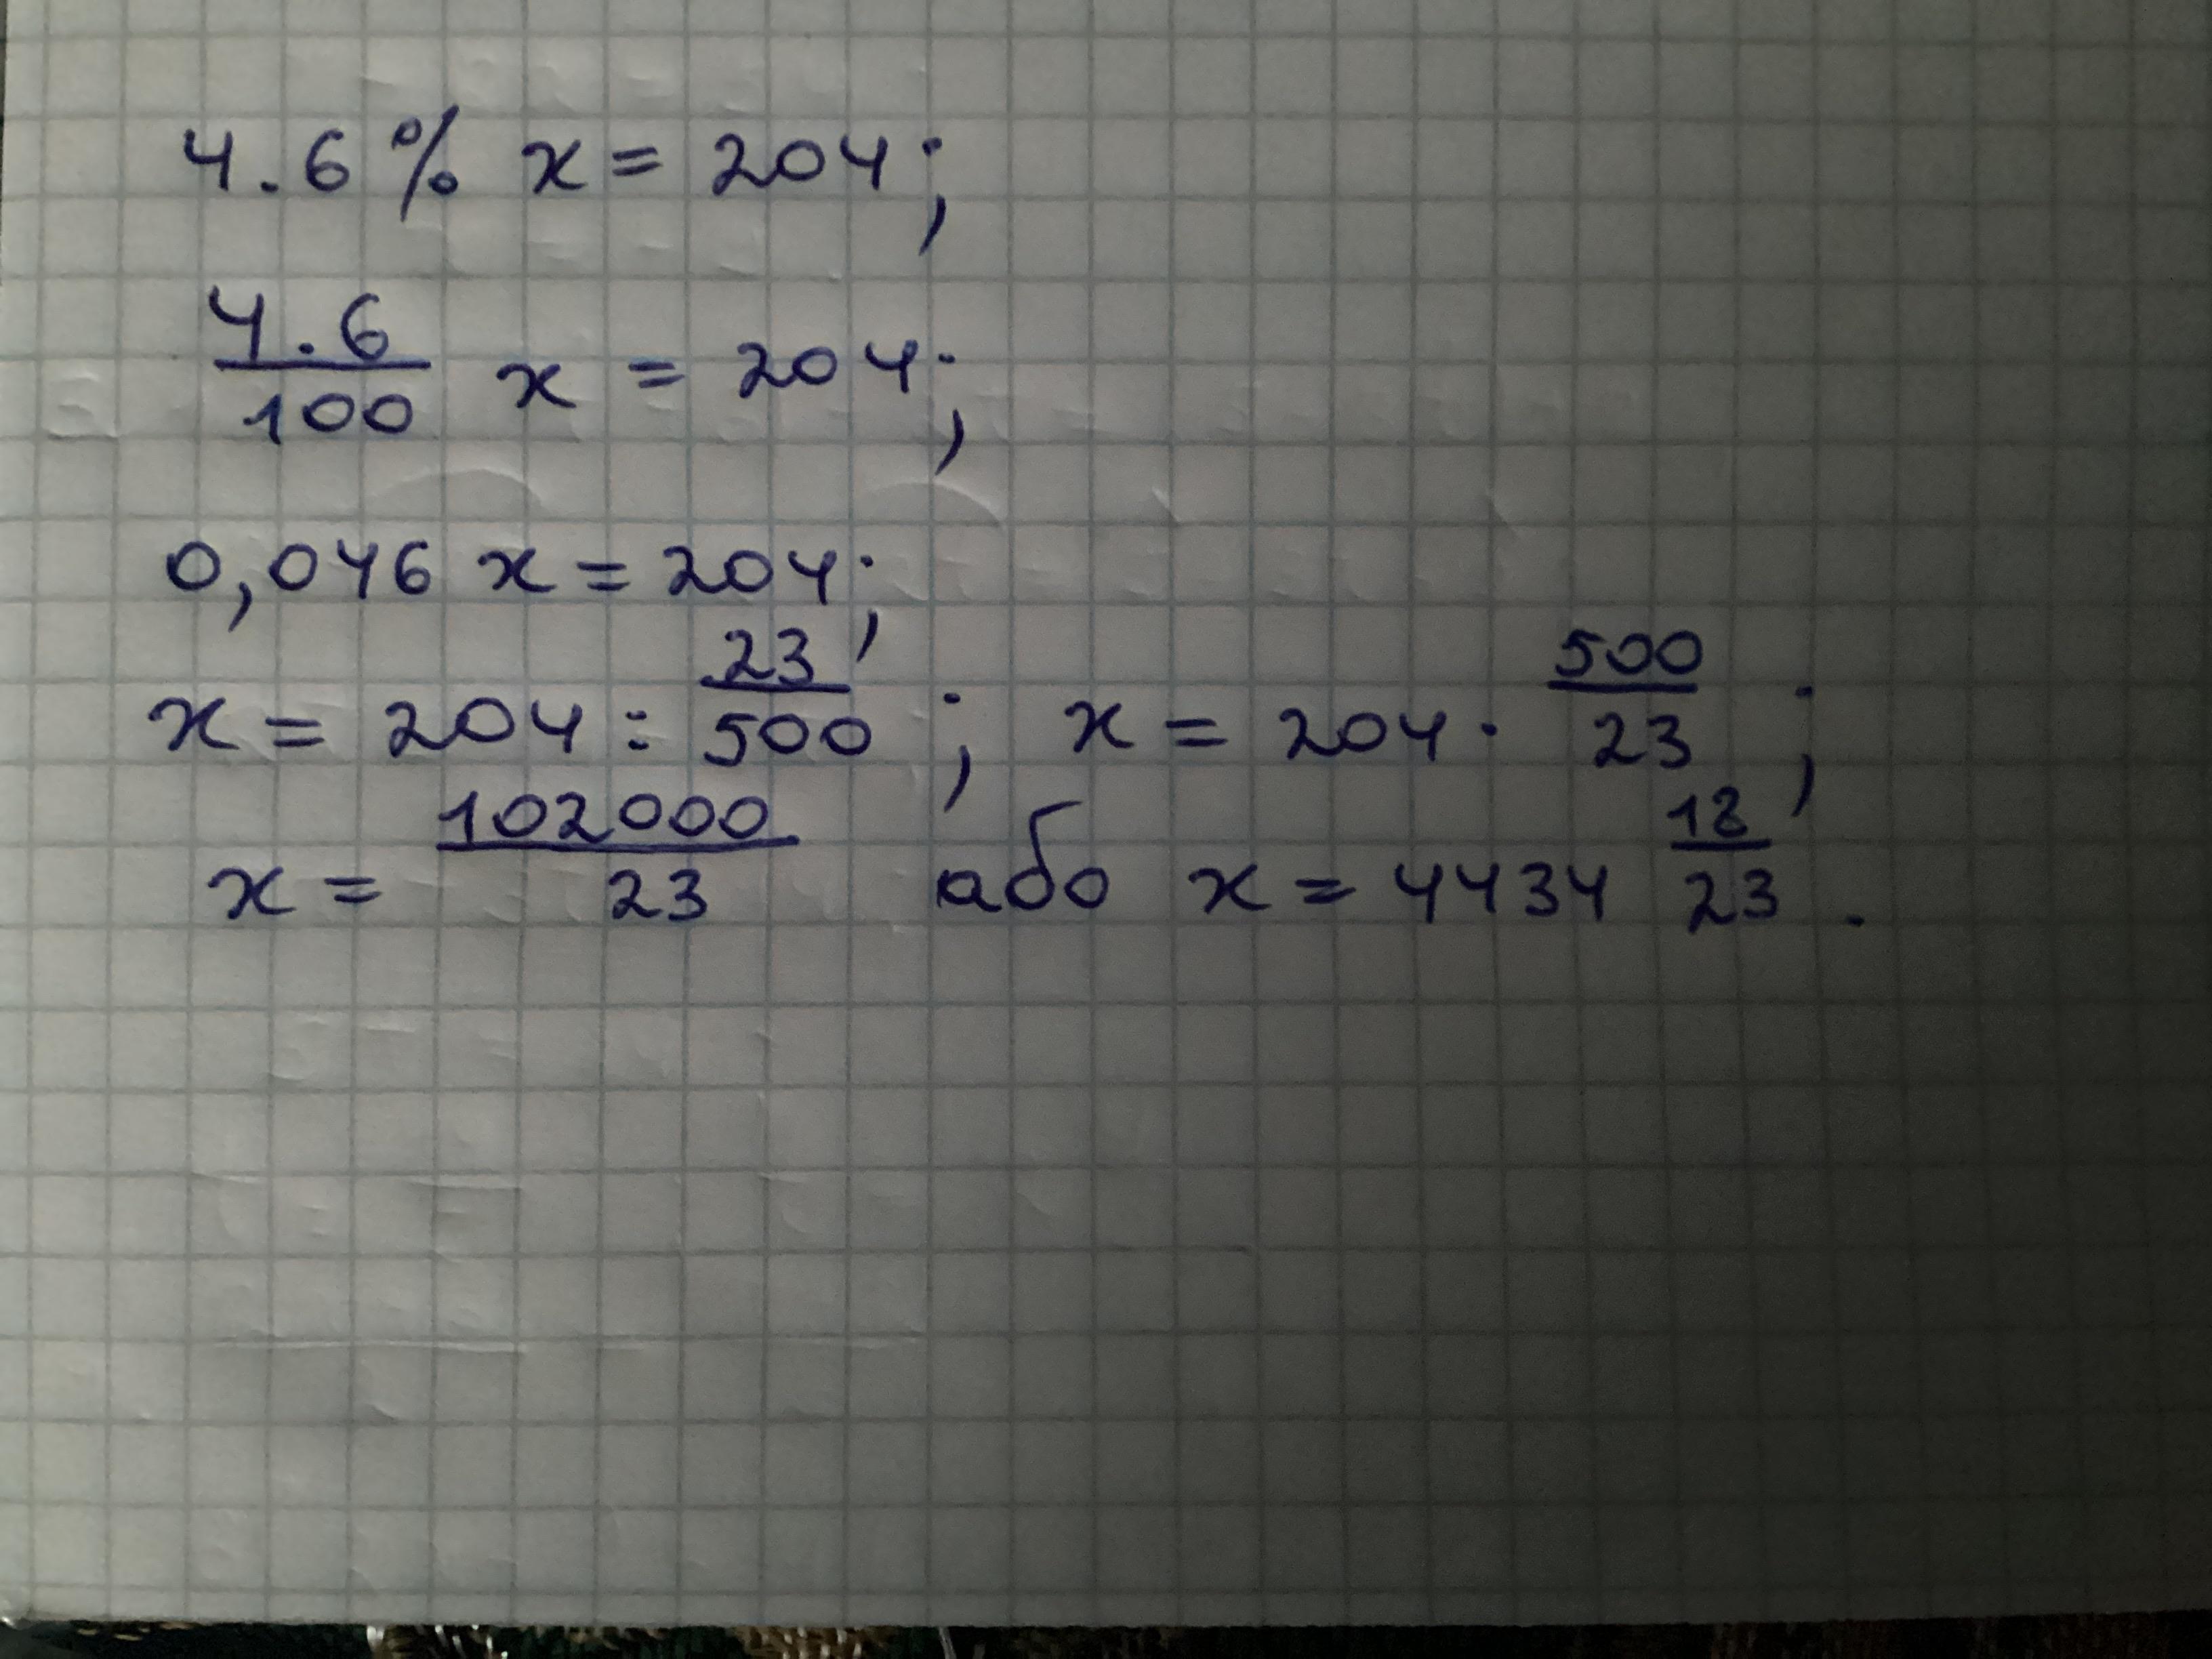 4.6% x = 204;
4.6/100 x = 204;
0,046 x = 204;
x = 204 : 23/500 ; x = 204 · 500/23 ;
x = 102000/23 або x = 4434 18/23 .